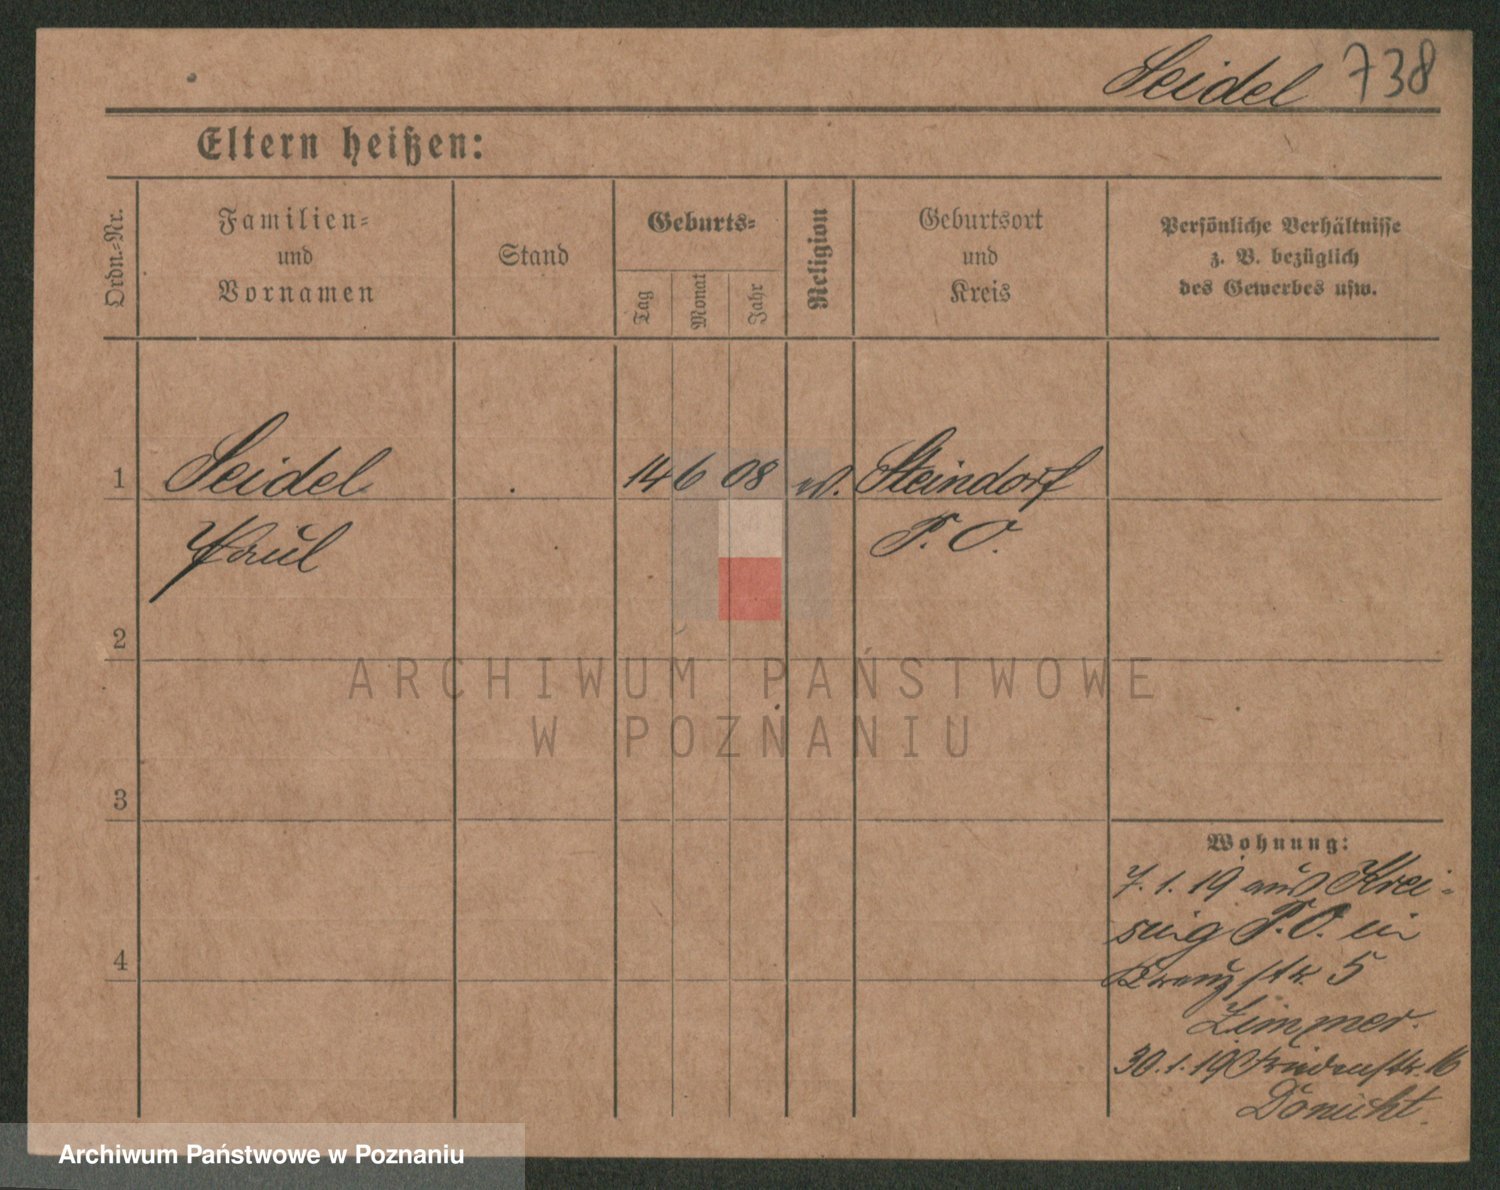 Seidel 738
Eltern heißen:
Ordn.-Nr.
Familien-
und
Vornamen
Stand
Geburts-
Tag
Monat
Jahr
Religion
Geburtsort
und
Kreis
Persönliche Verhältnisse
z. B. bezüglich
des Gewerbes usw.
1 Seidel 14 6 08 Steindorf
Paul P. O.
2
3
4
Wohnung:
7. 1. 19 aus Krei-
sing P. O. in
Kreuzstr. 5
Zimmer.
30. 1. 19
ARCHIWUM PAŃSTWOWE
W POZNANIU
Archiwum Państwowe w Poznaniu